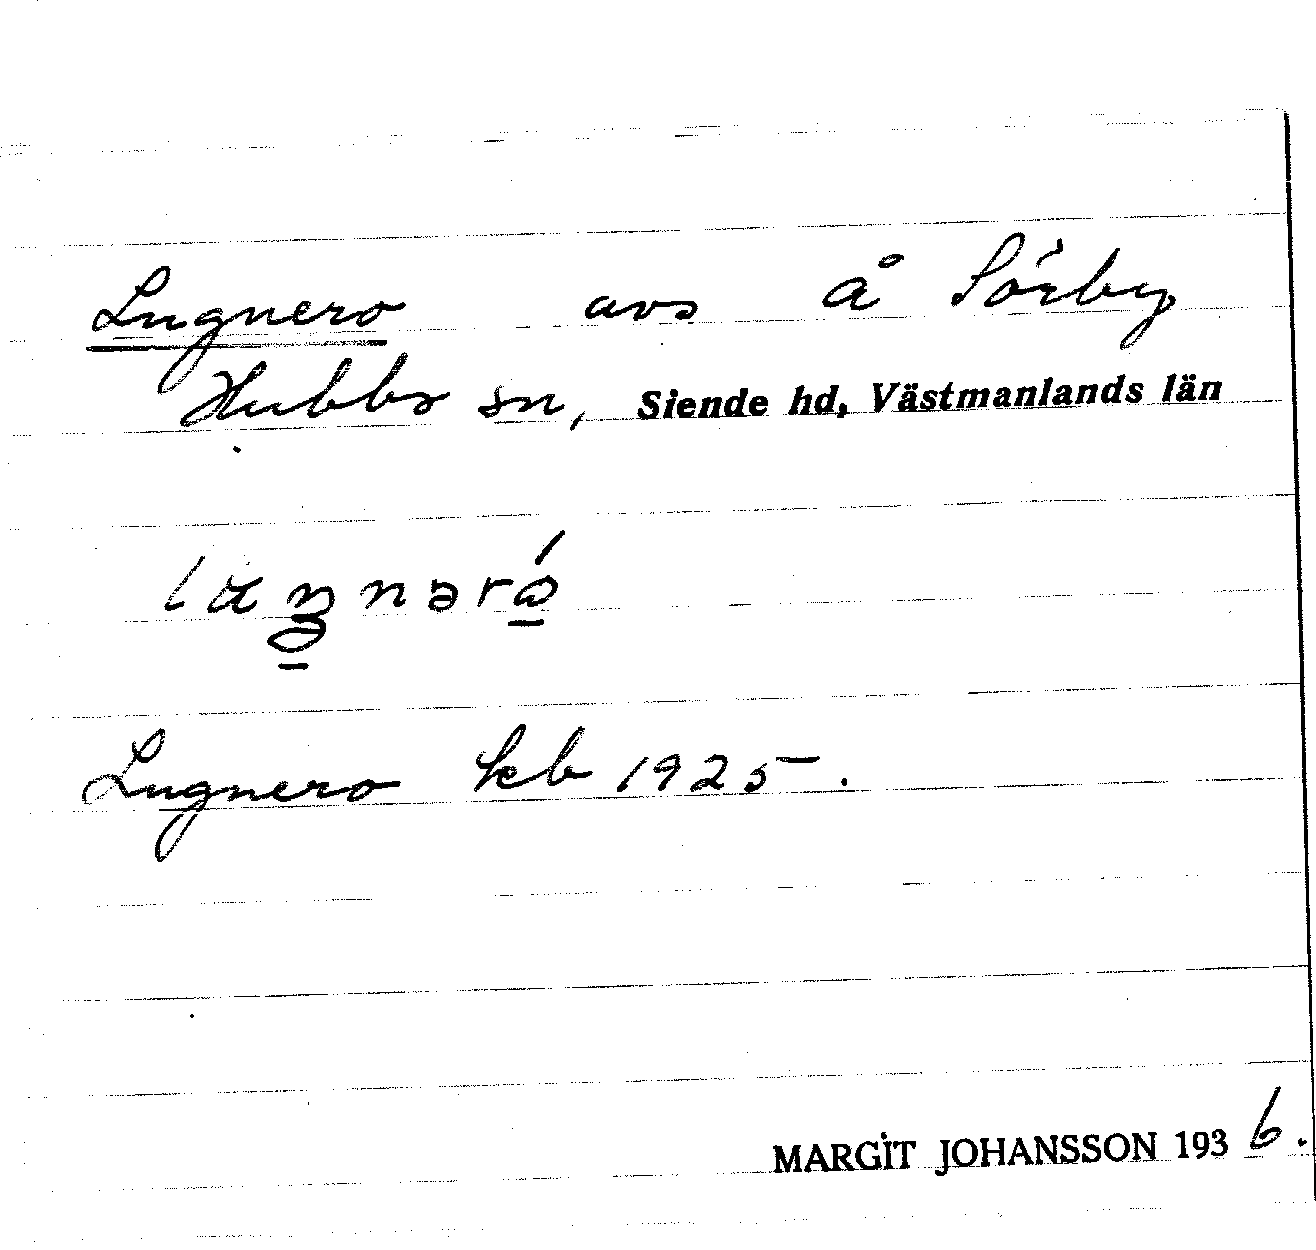 Lugnero avs å Sörby
Hubbo sn, Siende hd, Västmanlands län
Lugnero kb 1925.
MARGIT JOHANSSON 1936.